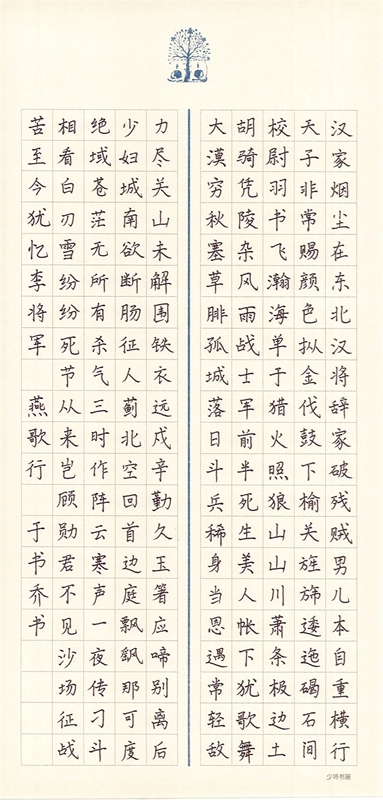 汉家烟尘在东北汉将辞家破残贼男儿本自重横行
天子非常赐颜色㧐金伐鼓下榆关旌旆逶迤碣石间
校尉羽书飞瀚海单于猎火照狼山山川萧条极边土
胡骑凭陵杂风雨战士军前半死生美人帐下犹歌舞
大漠穷秋塞草腓孤城落日斗兵稀身当恩遇常轻敌
力尽关山未解围铁衣远戍辛勤久玉箸应啼别离后
少妇城南欲断肠征人蓟北空回首边庭飘飖那可度
绝域苍茫无所有杀气三时作阵云寒声一夜传刁斗
相看白刃雪纷纷死节从来岂顾勋君不见沙场征战
苦至今犹忆李将军 燕歌行 于书乔书